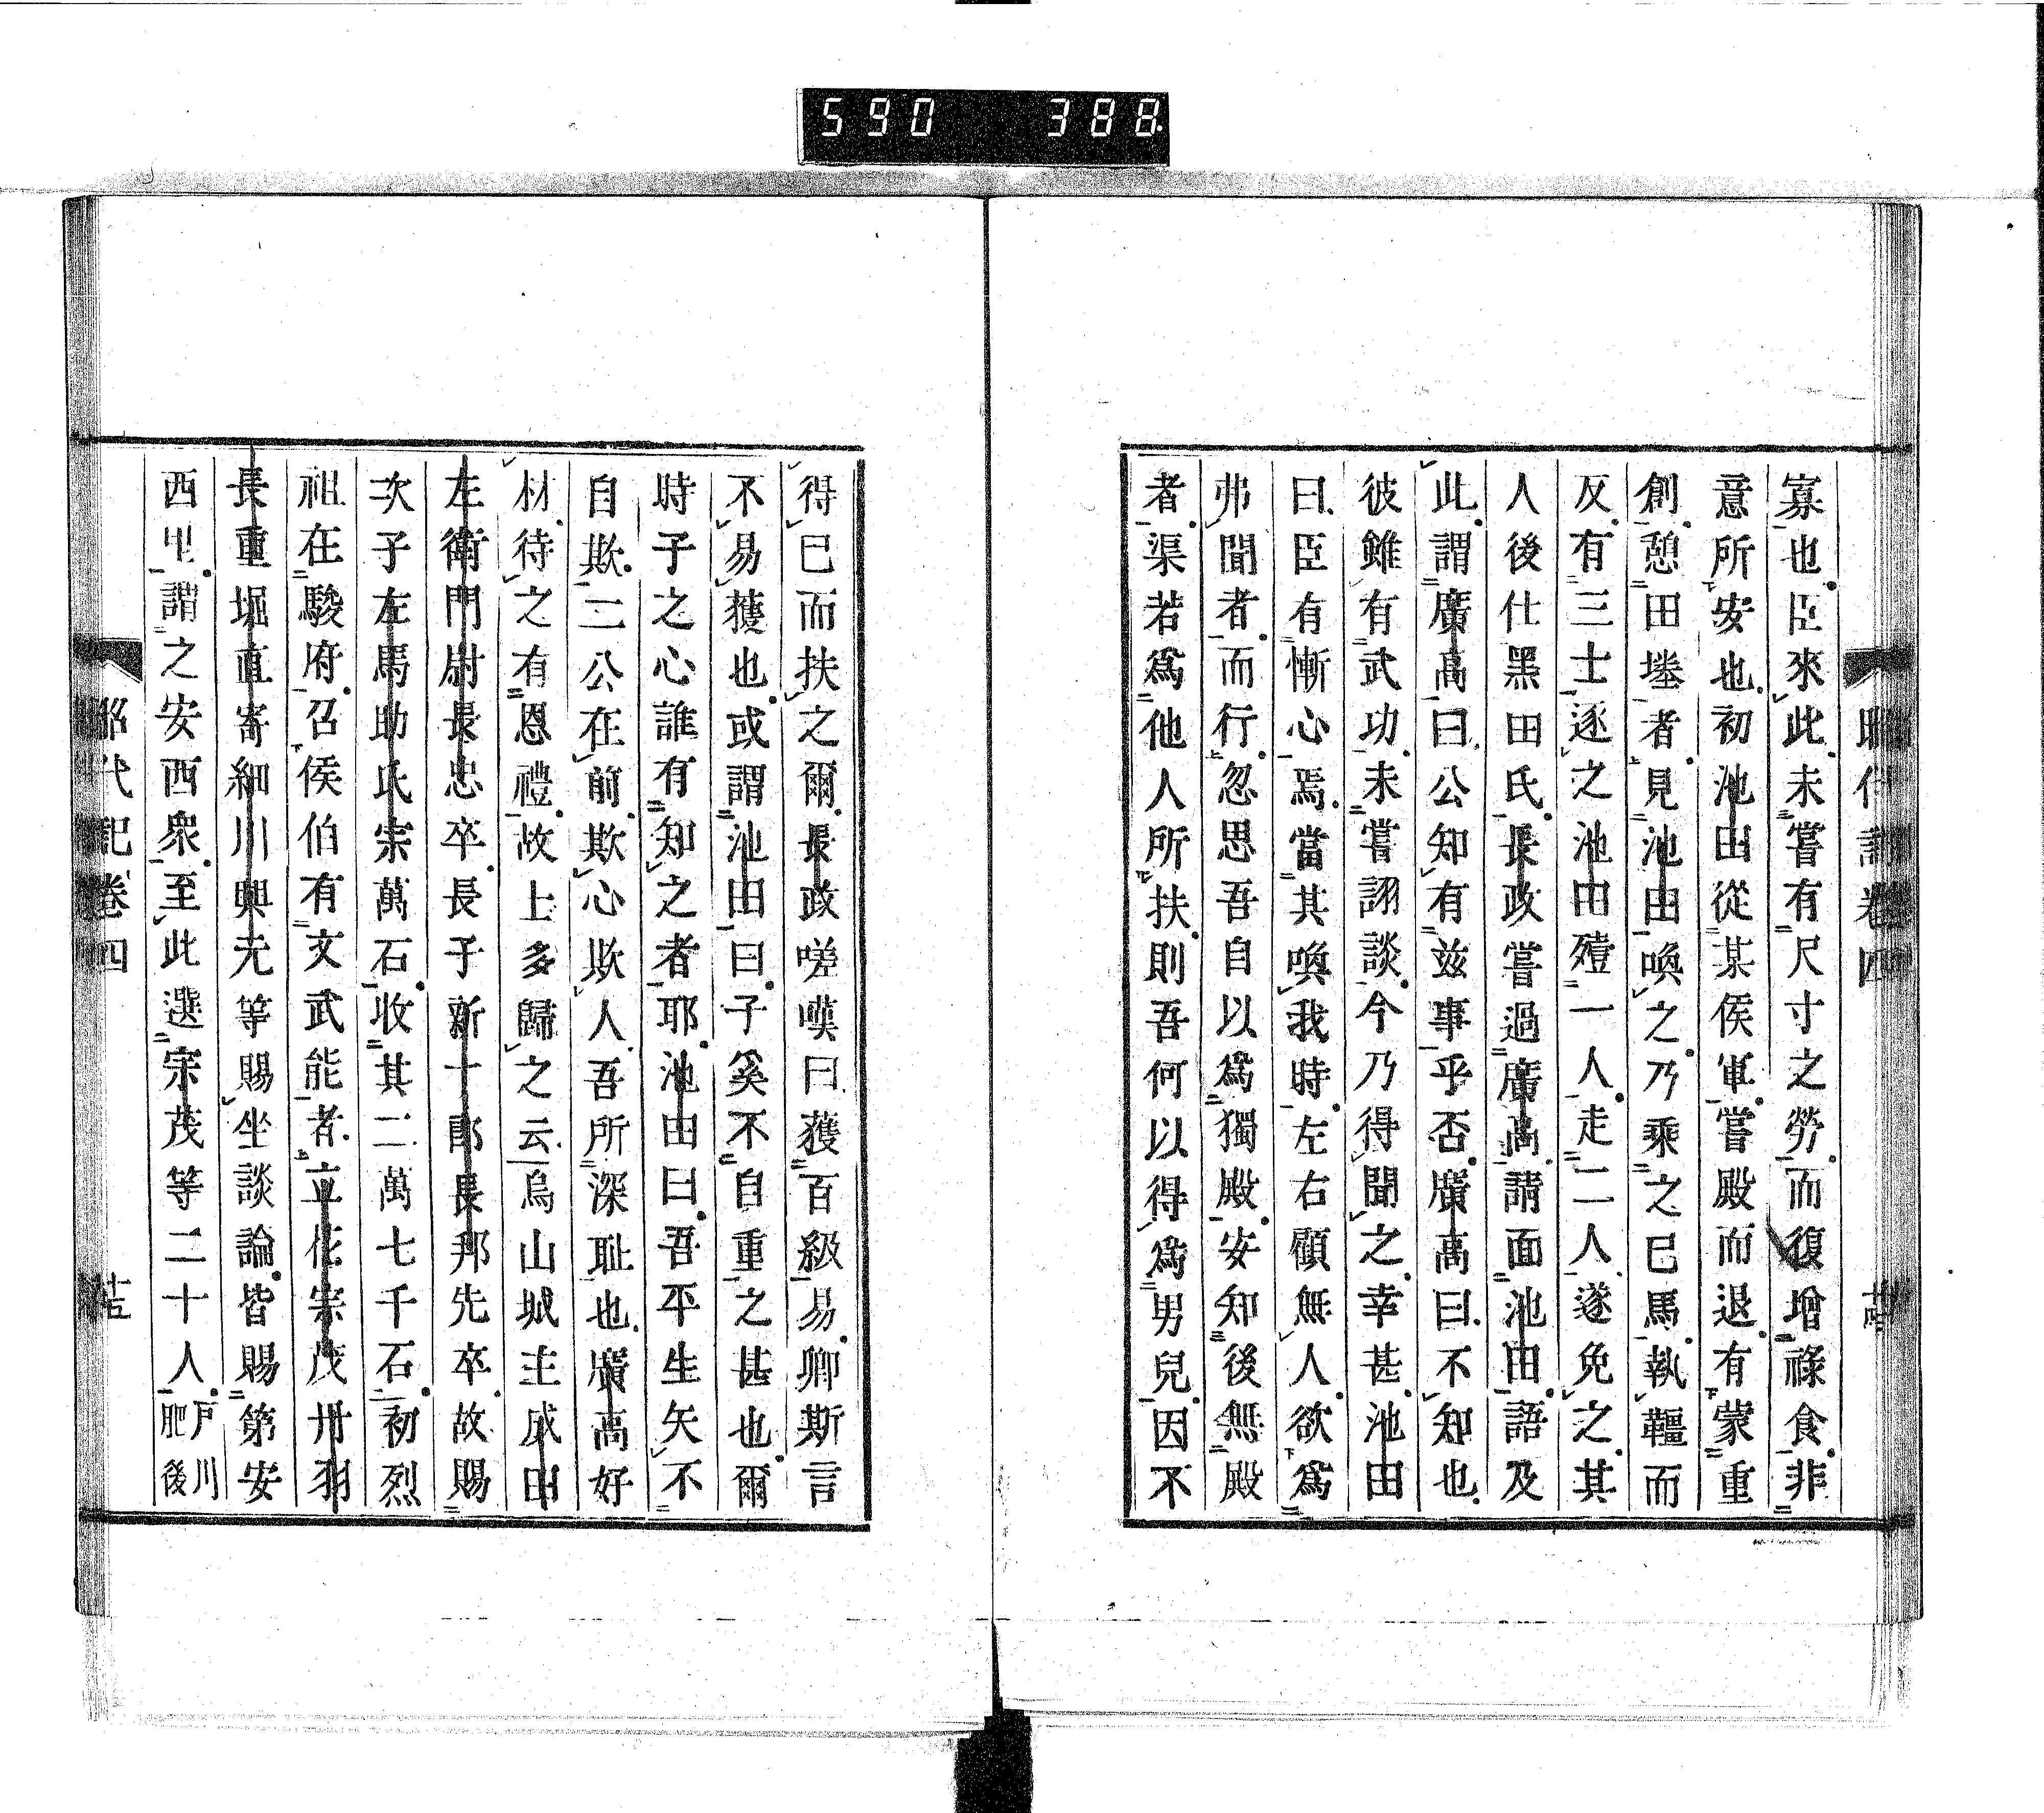 590 388
昭代記卷四
寡也臣來此未嘗有尺寸之勞而復增祿食非
意所安也初池田從某侯軍嘗殿而退有蒙重
創憩田塍者見池田喚之乃乘之已馬執韁而
反有三士逐之池田殪一人走二人遂免之其
人後仕黑田氏長政嘗過廣高請面池田語及
此謂廣高曰公知有茲事乎否廣高曰不知也
彼雖有武功未嘗詡談今乃得聞之幸甚池田
曰臣有慚心焉當其喚我時左右顧無人欲爲
弗聞者而行忽思吾自以爲獨殿安知後無殿
者渠若爲他人所扶則吾何以得爲男兒因不
得已而扶之爾長政嗟嘆曰獲百級易卿斯言
不易獲也或謂池田曰子奚不自重之甚也爾
時子之心誰有知之者耶池田曰吾平生矢不
自欺二公在前欺心欺人吾所深耻也廣高好
材待之有恩禮故上多歸之云烏山城主成田
左衛門尉長忠卒長子新十郎長邦先卒故賜
次子左馬助氏宗萬石收其二萬七千石初烈
祖在駿府召侯伯有文武能者立花宗茂丹羽
長重堀直寄細川興元等賜坐談論皆賜第安
西里謂之安西衆至此選宗茂等二十人戶川
肥後
昭代記卷四